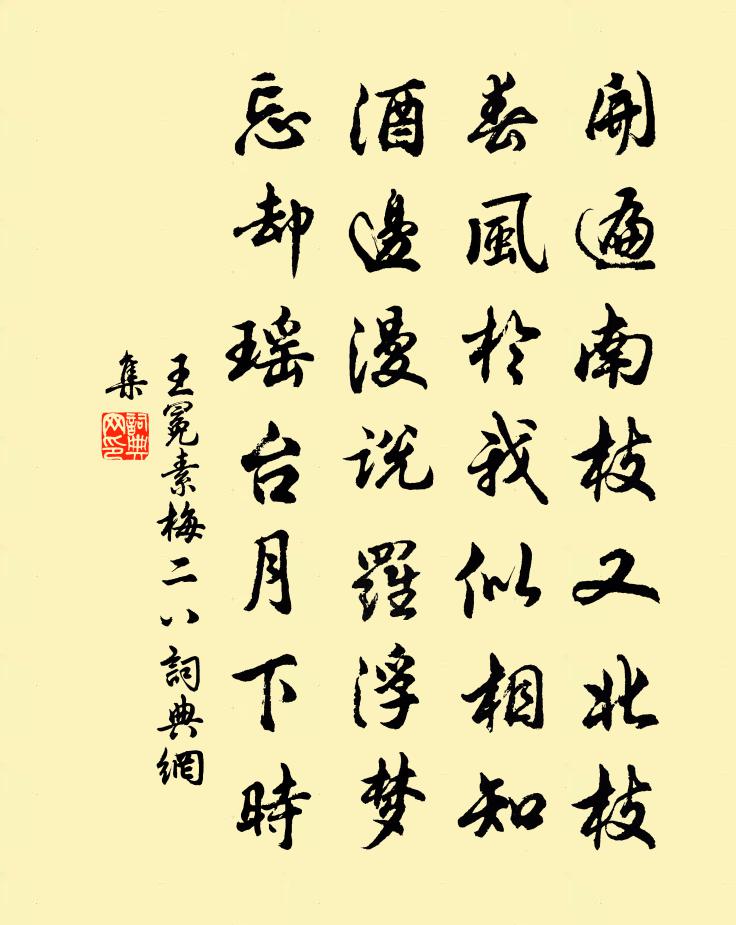 開遍南枝又北枝
春風於我似相知
酒邊漫説羅浮梦
忘却瑶台月下時
王冕素梅二八詞典網
集
詞典
网印